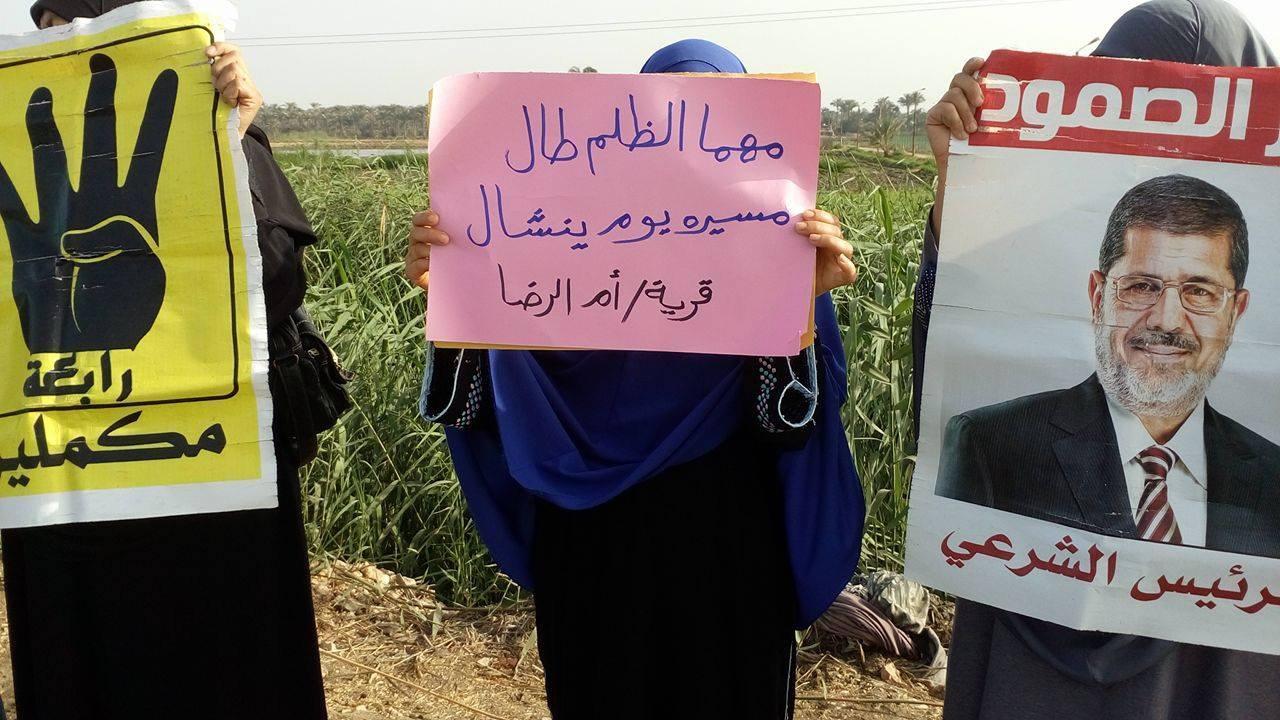 رابعة
مهما الظلم طال
مسيره يوم ينشال
قرية/أم الرضا
الصمود
الشرعي